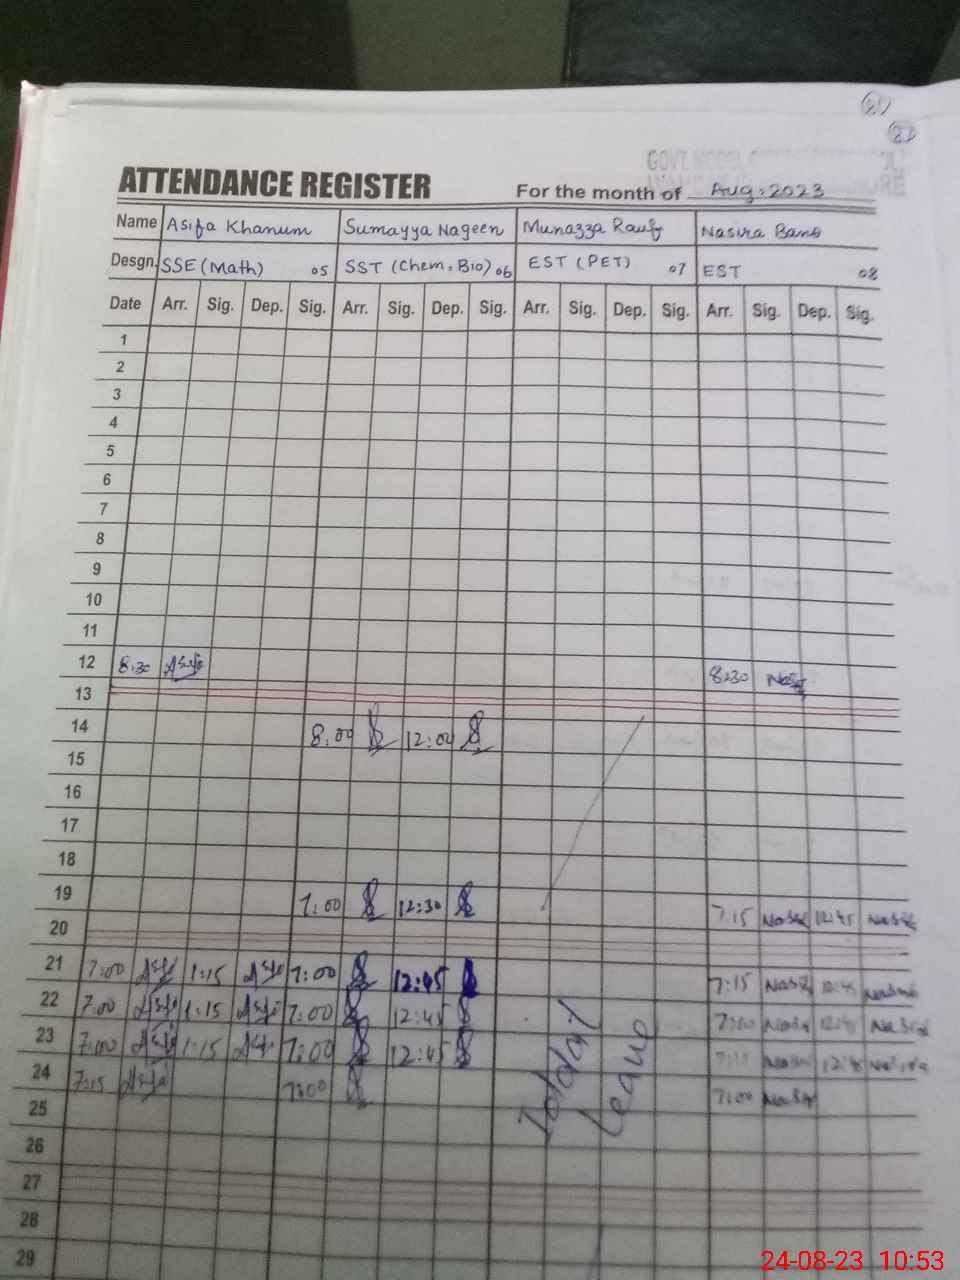 21
ATTENDANCE REGISTER For the month of Aug. 2023
Name Asifa Khanum Sumayya Nageen Munazza Rauf Nasira Bano
Desgn. SSE (Math) 05 SST (Chem, Bio) 06 EST (PET) 07 EST 08
Date Arr. Sig. Dep. Sig. Arr. Sig. Dep. Sig. Arr. Sig. Dep. Sig. Arr. Sig. Dep. Sig.
1
2
3
4
5
6
7
8
9
10
11
12 8:30 Asifa 8:30
13
14 8:00 12:00
15
16
17
18
19 7:00 12:30 7:15 12:45
20
21 7:00 Asifa 1:15 Asifa 7:00 12:45 7:15 12:45
22 7:00 Asifa 1:15 Asifa 7:00 12:45 7:00 12:45
23 7:00 Asifa 1:15 Asifa 7:00 12:45 12:45
24 7:15 Asifa 7:00 7:00
Leave
25
26
27
28
29
24-08-23 10:53